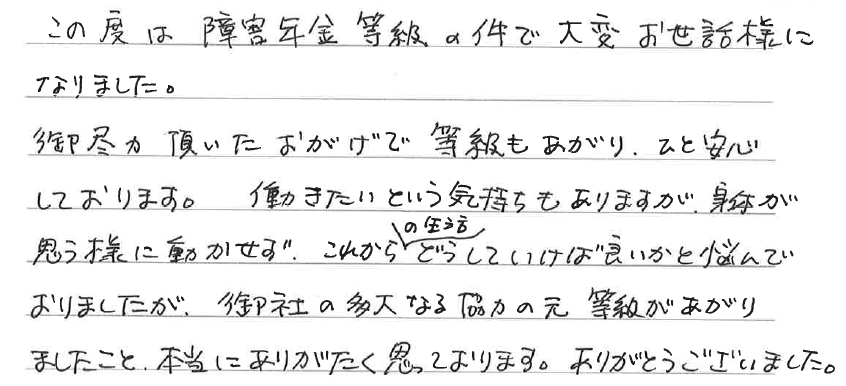 この度は 障害年金 等級の件で 大変 お世話様に
なりました。
御尽力 頂いた おがげで 等級も あがり、ひと安心
しております。 働きたいという気持ちもありますが、身体が
思う様に動かせず、これからの生活どうしていけば良いかと悩んで
おりましたが、御社の多大なる協力の元 等級があがり
ましたこと、本当にありがたく思っております。ありがとうございました。